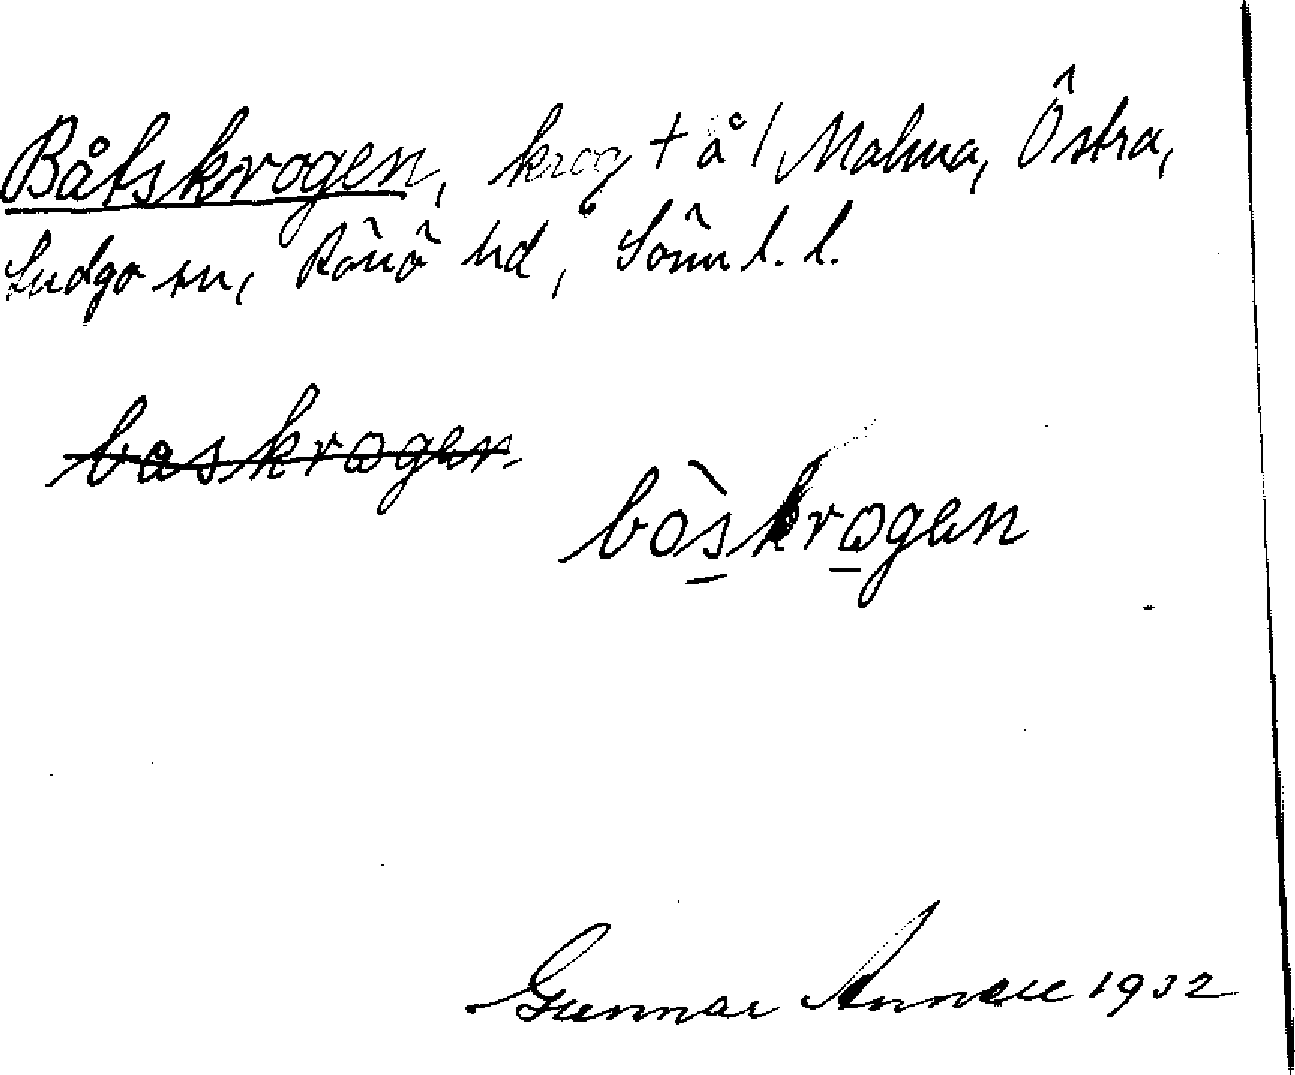 Båtskrogen, krog + å / Malma, Östra,
Ludgo sn, Rönö hd, Sörml. l.
baskrogen
bòskrogen
Gunnar 1932